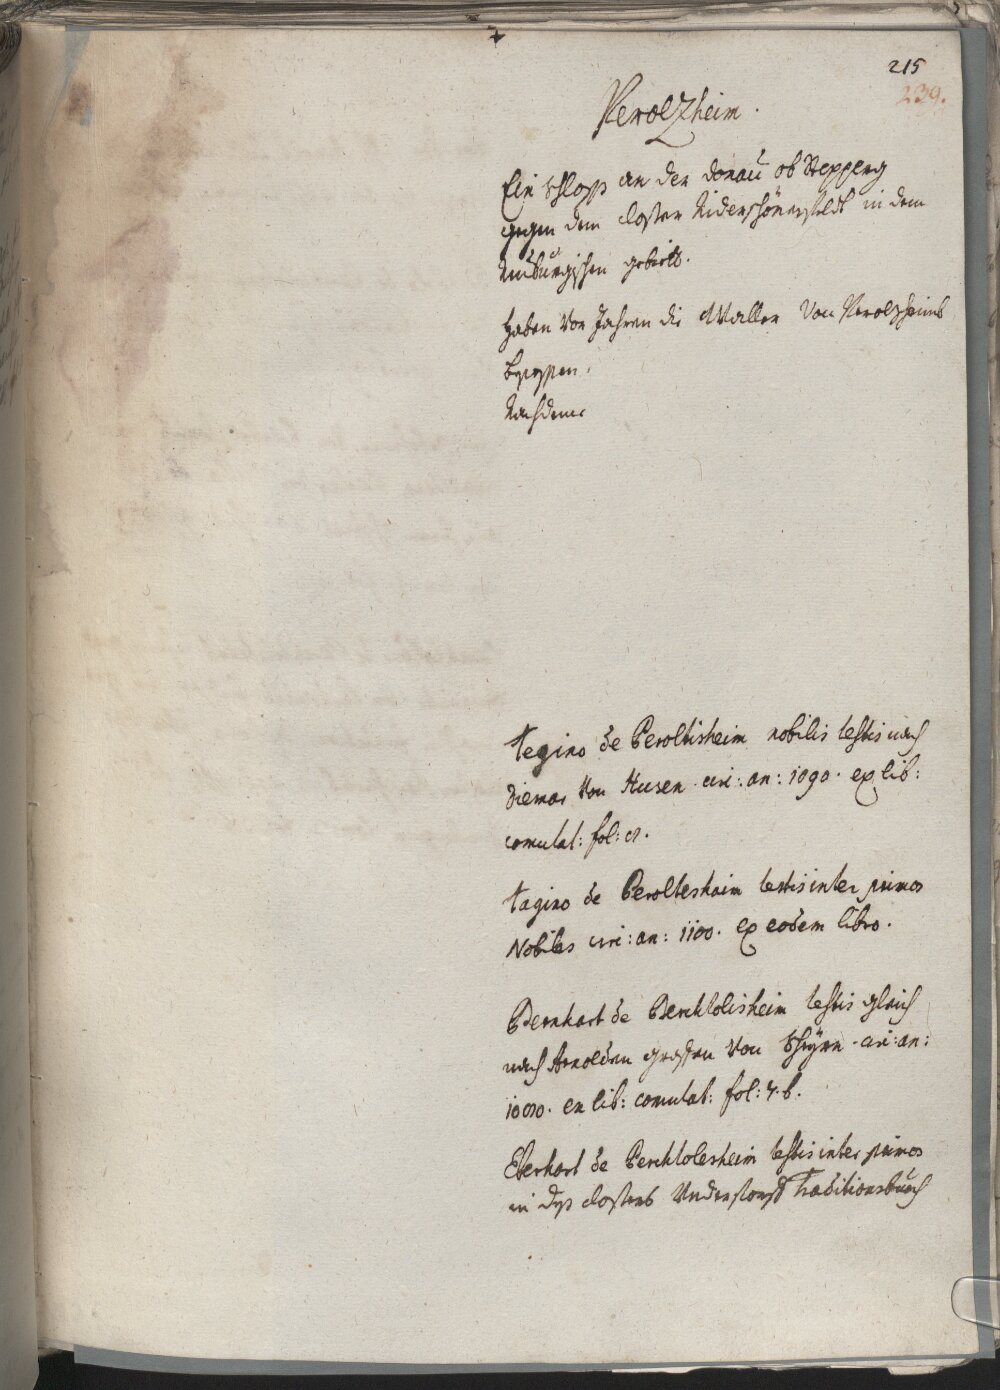 215
239.
Perolzheim.
Ein Schloss an der Donau ob Stepperg
gegen dem Closter Niderschönenfeldt in dem
Neuburgischen gebiett.
Haben vor Jahren die Waller von Perolzheimb
besessen.
Nachdeme
Tegino de Peroltisheim nobilis testis nach
Diemar von Husen. circ: an: 1090. ex lib:
comutat: fol:
Tagino de Perolteshaim testis inter primos
Nobiles circ: an: 1100. ex eodem libro.
Bernhart de Berchtolisheim testis gleich
nach Arnolden grafen von Schyrn. circ: an:
ex lib: comutat: fol: 4. b.
Eberhart de Berchtolesheim testis inter primos
in dess Closters Understorff Traditionsbuech